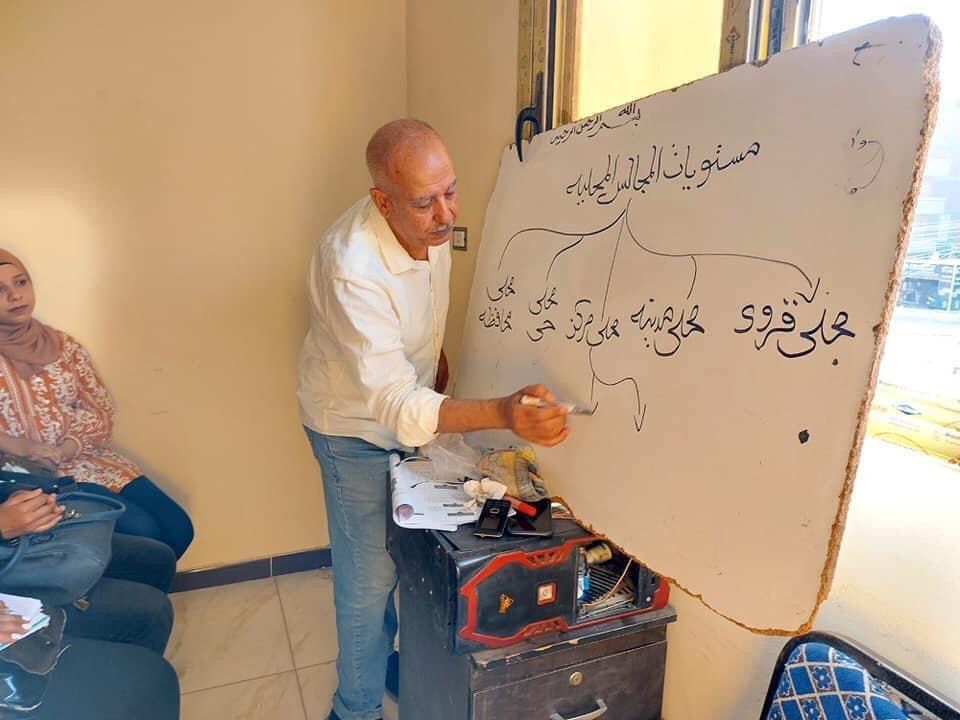 بسم الله الرحمن الرحيم
مستويات المجالس المحليه
محلى قروى
محلى مدينه
محلى مركز
محلى حى
محلى محافظه